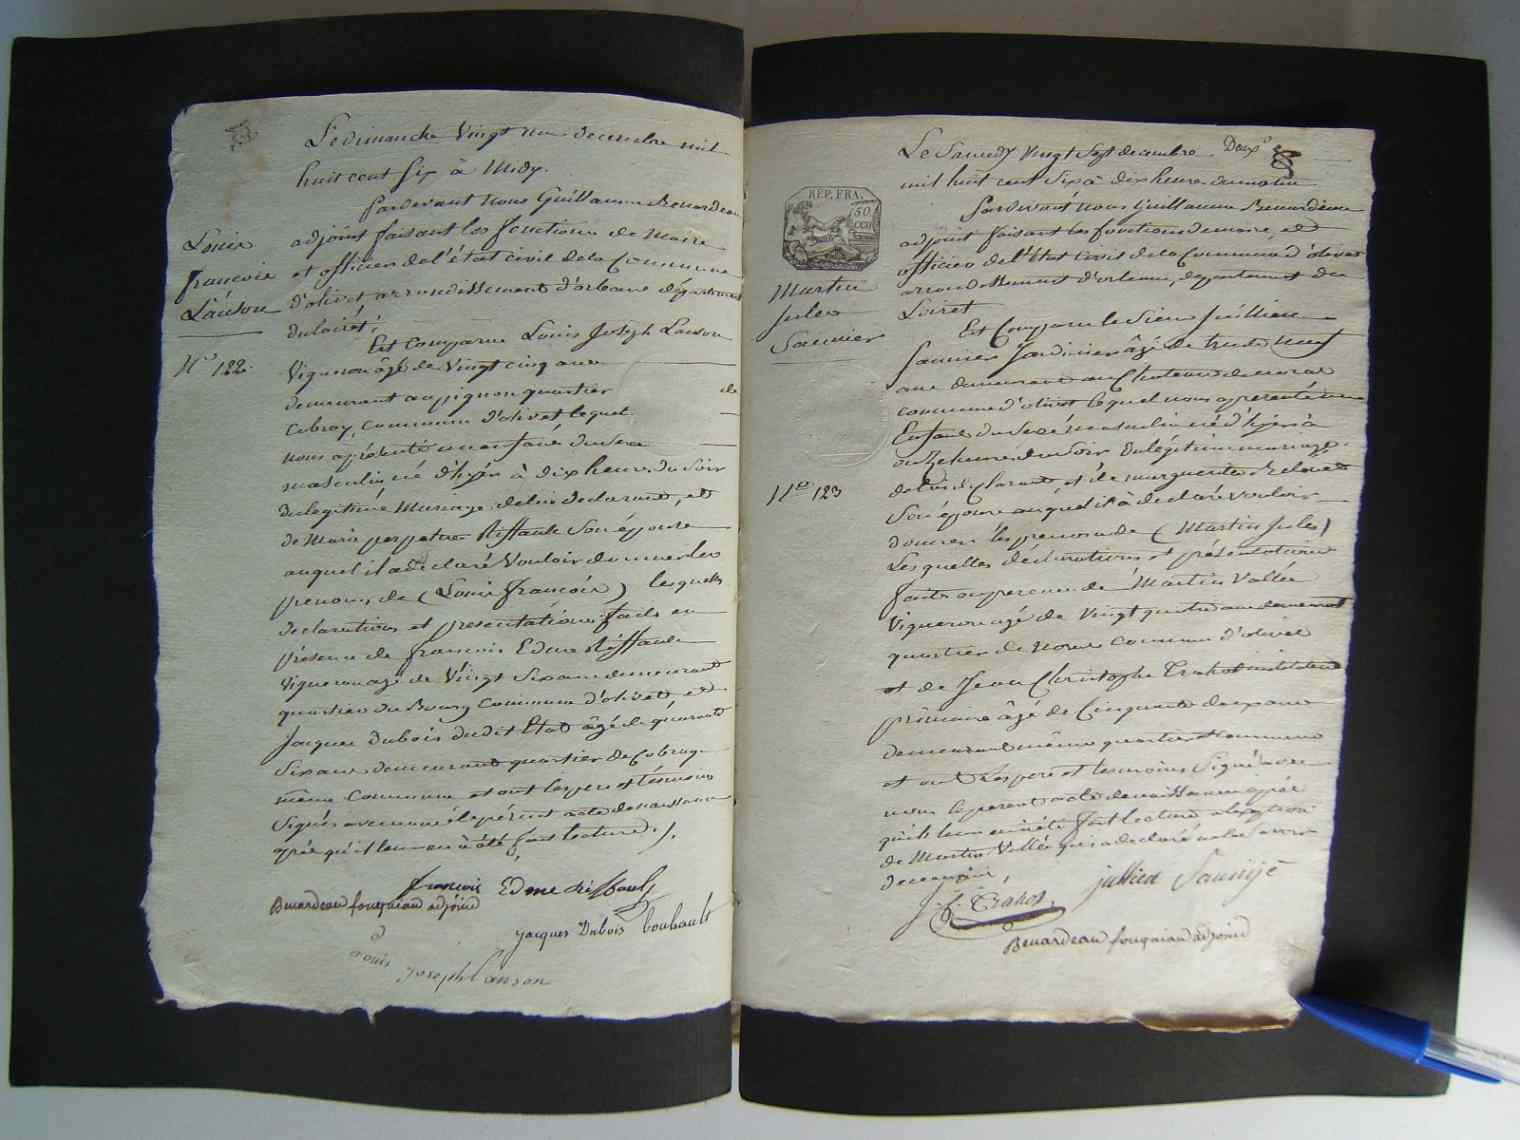 Le dimanche Vingt un decembre mil
huit cent six à Midy.
Pardevant nous Guillaume Benardeau
adjoint faisant les fonctions de Maire
et officier de l'état civil de la Commune
d'olivet arrondissement d'orleans département
du loiret;
Est Comparue Louis Joseph Lanson
Vigneron âgé de Vingt cinq ans
demeurant au pignon quartier de
Cobray, Commune d'olivet lequel
nous a présenté un enfant du sexe
masculin né d'hyer à dix heures du soir
du légitime Mariage de lui declarant, et
de Marie perpetue Riffault Son épouse
auquel il a déclaré Vouloir donner les
prenoms de (Louis françois) lesquelles
declarations et présentations faits en
présence de françois Edme Riffault
Vigneron agé de Vingt Six ans demeurant
quartier du Bourg Commune d'olivet, et
Jacques Dubois dudit Etat âgé de quarante
Six ans demeurant quartier de Cobray
même Commune et ont les pere et témoins
Signés avec nous le présent acte de naissance
après qu'il leur en à été fait lecture ./.
françois Edme Riffault
Benardeau fougniau adjoint
jacques Dubois bouhault
Louis
Joseph Lanson
Louis
françois
Lanson
N° 122.
Le Samedy Vingt Sept decembre
mil huit cent Six à dix heures du matin
Pardevant nous Guillaume Benardeau
adjoint faisant les fonctions de maire, et
officier de l'état Civil de la Commune d'olivet
arrondissement d'orleans, departement du
Loiret
Est Comparu le Sieur Jullien
Saunier Jardinier âgé de trente neuf
ans demeurant au Chateau de
commune d'olivet lequel nous a présenté un
Enfant du Sexe masculin né d'hyer à
onze heures du Soir du légitime mariage
de lui declarant, et de marguerite
Son épouse auquel il à declaré vouloir
donner les prenoms de (Martin Jules)
Lesquelles déclarations et présentations
faits en presence de Martin Vallée
Vigneron agé de Vingt quatre ans demeurant
quartier de commune d'olivet
et de Jean Christophe Trahot instituteur
primaire âgé de Cinquante deux ans
demeurant même quartier et commune
et ont les pere et temoins Signé avec
nous le present acte de naissance après
qu'il leur en à été fait lecture a l'exception
de Martin Vallée qui a declaré ne le savoir
de ce enquis,
J. C. Trahot
jullien Saunije
Benardeau fougniau adjoint
REP. FRA.
50
CEN
Martin
Jules
Saunier
N° 123